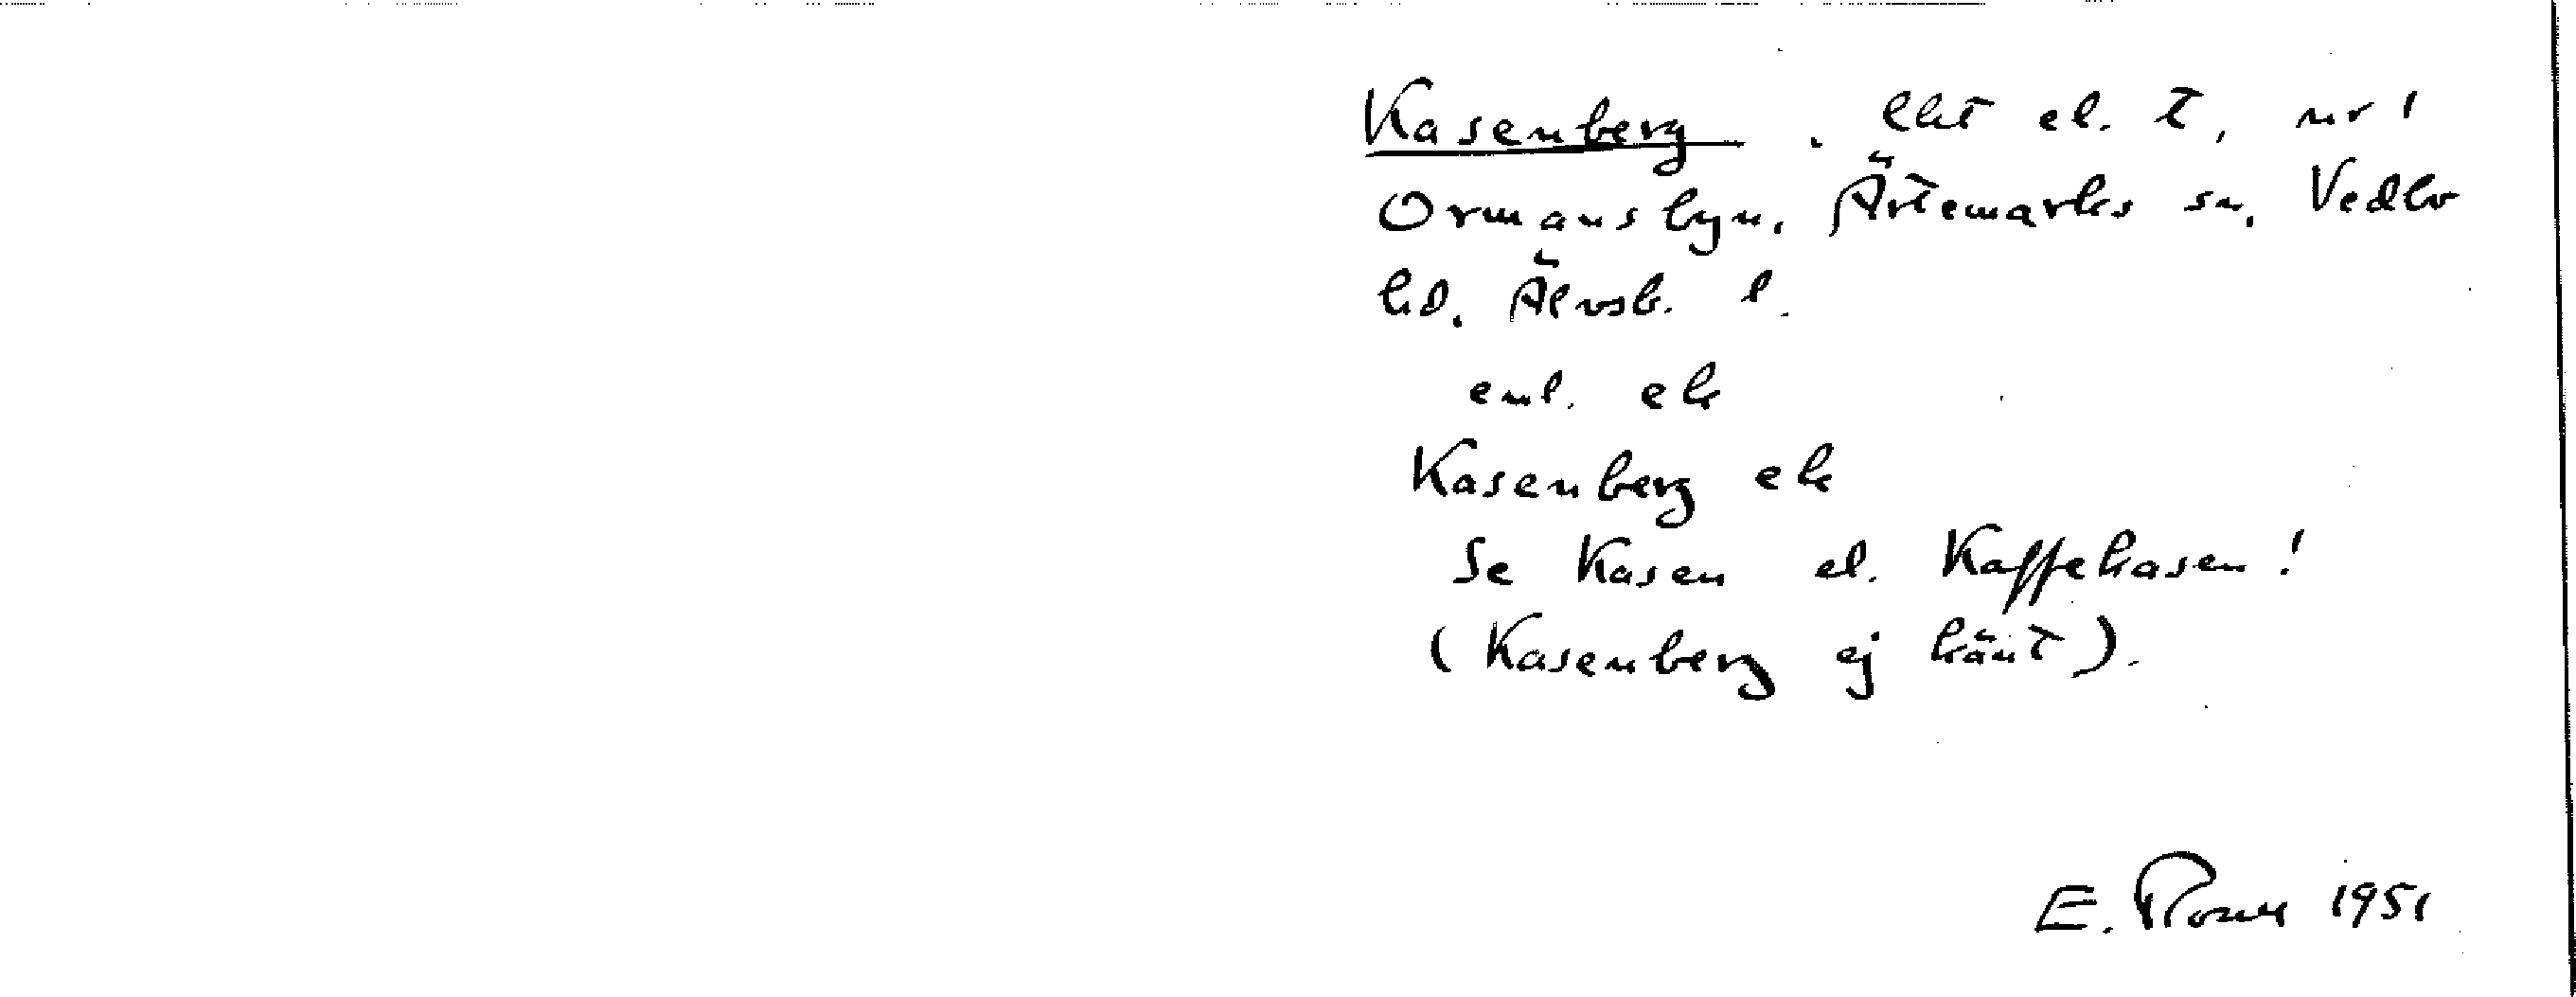 Kasenberg. lht el. t, nr 1
Ormansbyn. Ärtemarks sn. Vedbo
hd. Älvsb. l.
enl. ek
Kasenberg ek
Se Kasen el. Kaffekasen!
(Kasenberg ej känt).
E. 1951